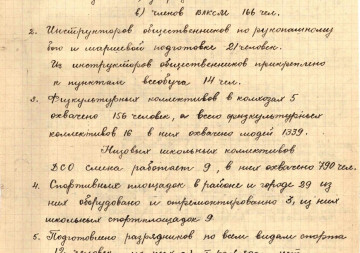 в) членов ВЛКСМ 166 чел.
2. Инструкторов общественников по рукопашному
бою и маршевой подготовке 21 человек.
Из инструкторов общественников прикреплено
к пунктам всевобуча 14 чел.
3. Физкультурных коллективов в колхозах 5
охвачено 156 человек, а всего физкультурных
коллективов 16 в них охвачено людей 1339.
Низовых школьных коллективов
ДСО смена работает 9, в них охвачено 790 чел.
4. Спортивных площадок в районе и городе 29 из
них оборудовано и отремонтировано 8, из них
школьных спортплощадок 9.
5. Подготовлено разрядников по всем видам спорта
12 человек